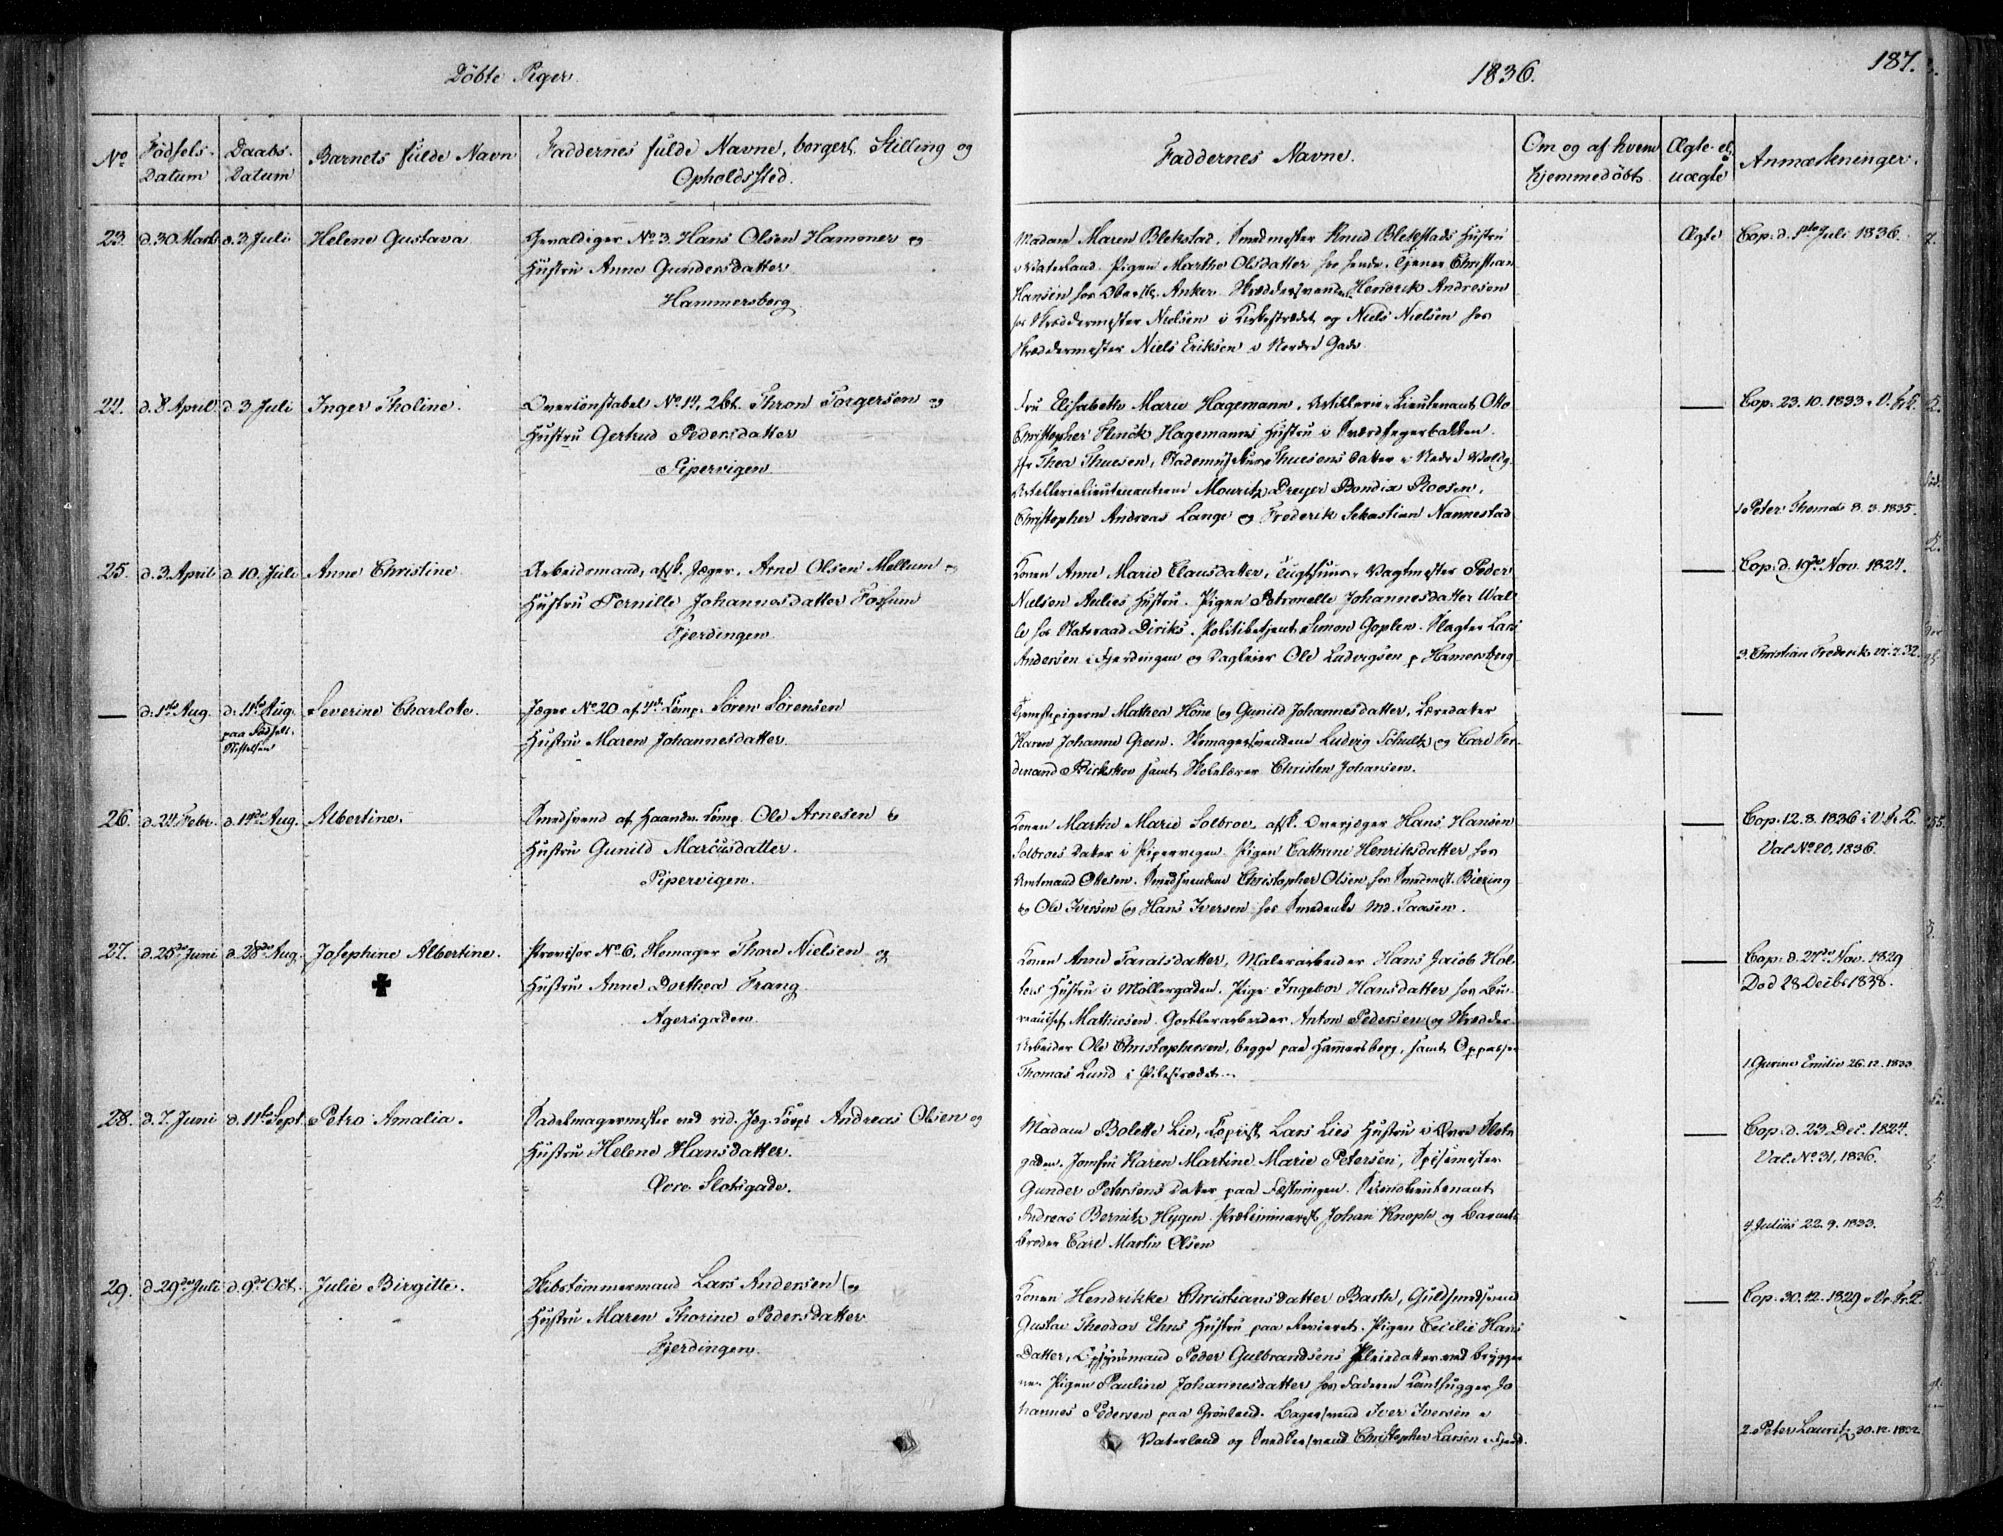 Døbte Piger.
1836.
187.
No
Fødsels-
Datum
Daabs-
Datum
Barnets fulde Navn
Faddernes fulde Navne, borgerl. Stilling og
Opholdssted.
Faddernes Navne.
Om og af hvem
hjemmedøbt
Ægte el.
uægte
Anmærkninger.
23. d. 30 Marts d. 3 Juli Helene Gustava
Gevaldiger No 3. Hans Olsen Hammer og
Hustru Anne Gundersdatter
Hammersborg
Madam Maren Blekstad, Smedmester Knud Blekstads Hustru
i Vaterland. Pigen Marthe Olsdatter hos hende. Tjener Christian
Hansen hos Oberstl. Anker. Skræddersvendene Hendrick Andresen
hos Skræddermester Nielsen i Kirkestrædet og Niels Nielsen hos
Skræddermester Niels Eriksen i Nordre Gade.
Ægte
Cop. d. 1ste Juli 1836.
24. d. 8 April d. 3 Juli Inger Tholine.
Overconstabel No 14, 2 Bt. Thron Torgersen og
Hustru Gertrud Pedersdatter
Pipervigen
Fru Elisabeth Marie Hagemann, Artillerie-Lieutenant Otto
Christopher Flinck Hagemanns Hustru i Sværdfegerbakken.
Jfr Thea Thuesen, Stadsmusikus Thuesens Datter i Nedre Voldg.
Artillerielieutenanterne Mouritz Dreyer Bendix Roosen,
Christopher Andreas Lange og Frederik Sebastian Nannestad
Cop. 23. 10. 1833 i V. Fr. K.
1 Peter Thomas 8. 3. 1835.
25. d. 3. April d. 10. Juli Anne Christine
Arbeidsmand, afsk. Jæger, Arne Olsen Mellum og
Hustru Pernille Johannesdatter Fossum
Fjerdingen
Konen Anne Marie Clausdatter, Tugthuus-Vagtmester Peder
Nielsen Aulies Hustru. Pigen Petronelle Johannesdatter Wal-
le hos Statsraad Diriks. Politibetjent Simon Goplen. Slagter Lars
Andersen i Fjerdingen og Dagleier Ole Ludvigsen p. Hamersborg
Cop. d. 19de Nov. 1824.
3. Christian Frederik 32.
d. 1ste Aug. d. 11te Aug.
paa Fødsels-
Stiftelsen
Severine Charlote.
Jæger No 20 af 4de Comp. Søren Sørensen
Hustru Maren Johannesdatter.
Tjenestepigerne Mathea Høne og Gunild Johannesdatter, Læredatter
Karen Johanne Green. Skomagersvendene Ludvig Schultz og Carl Fer-
dinand Birkskov samt Skolelærer Christen Johansen.
26. d. 24 Febr. d. 14de Aug. Albertine.
Smedsvend af Haandv. Comp. Ole Arnesen og
Hustru Gunild Marcusdatter.
Pipervigen.
Konen Marthe Marie Solbroe, afsk. Overjæger Hans Hansen
Solbroes Datter i Pipervigen. Pigen Cathrine Henriksdatter hos
Amtmand Ottesen. Smedsvendene Christopher Olsen, hos Smedmest. Biering
og Ole Iversen og Hans Iversen hos Smedenke Md. Taasen.
Cop. 12. 8. 1836 i V. Fr. K.
Val No 20, 1836.
27. d. 25de Juni d. 28de Aug. Josephine Albertine.
Provisor No 6, Skomager Thore Nielsen og
Hustru Anne Dorthea Frang
Agersgaden
Konen Anne Taraldsdatter, Malerarbeider Hans Jacob Hol-
ters Hustru i Møllergaden. Pige Ingebor Hansdatter hos Bu-
reauchef Mathiesen. Gortlerarbeider Anton Pedersen og Skrædder-
Arbeider Ole Christophersen, begge paa Hammersborg, samt Oppasser
Thomas Lund i Pilestrædet.
Cop. d. 27de Nov. 1829
Død 28 Decbr 1838.
1. Gurine Emilie 26. 12. 1833
28. d. 7. Juni d. 11te Sept Petro Amalia.
Sadelmagermester ved rid. Jæg. Corps Andreas Olsen og
Hustru Helene Hansdatter.
Øvre Slotsgade.
Madam Bolette Lie, Copist Lars Lies Hustru i Øvre Slots-
gaden. Jomfru Karen Martine Marie Petersen, Spisemester
Gunder Petersens Datter paa Fæstningen. Secondlieutenant
Andreas Bernitz Hygen. Præliminarist Johan Knoph og Barnets
broder Carl Martin Olsen
Cop. d. 23 Dec. 1824.
Val. No 31, 1836.
4 Julius 22. 9. 1833.
29. d 29de Juli d. 9de Oct. Julie Birgitte.
Skibstømmermand Lars Andersen og
Hustru Maren Thorine Pedersdatter
Fjerdingen.
Konen Hendrikke Christiansdatter Barth, Guldsmedsvend
Gustav Theodor Ehns Hustru paa Revieret. Pigen Cecilie Hans
Datter, Opsynsmand Peder Gulbrandsens Pleiedatter ved Brygger-
ne. Pigen Pauline Johannesdatter hos Faderen Kanthugger Jo
hannes Pedersen paa Grønland. Bagersvend Iver Iversen i
Vaterland og Snedkersvend Christopher Larsen i Fjerd.
Cop. 30. 12. 1829 i Vr. Fr. K.
2. Peter Lauritz 30. 12. 1832